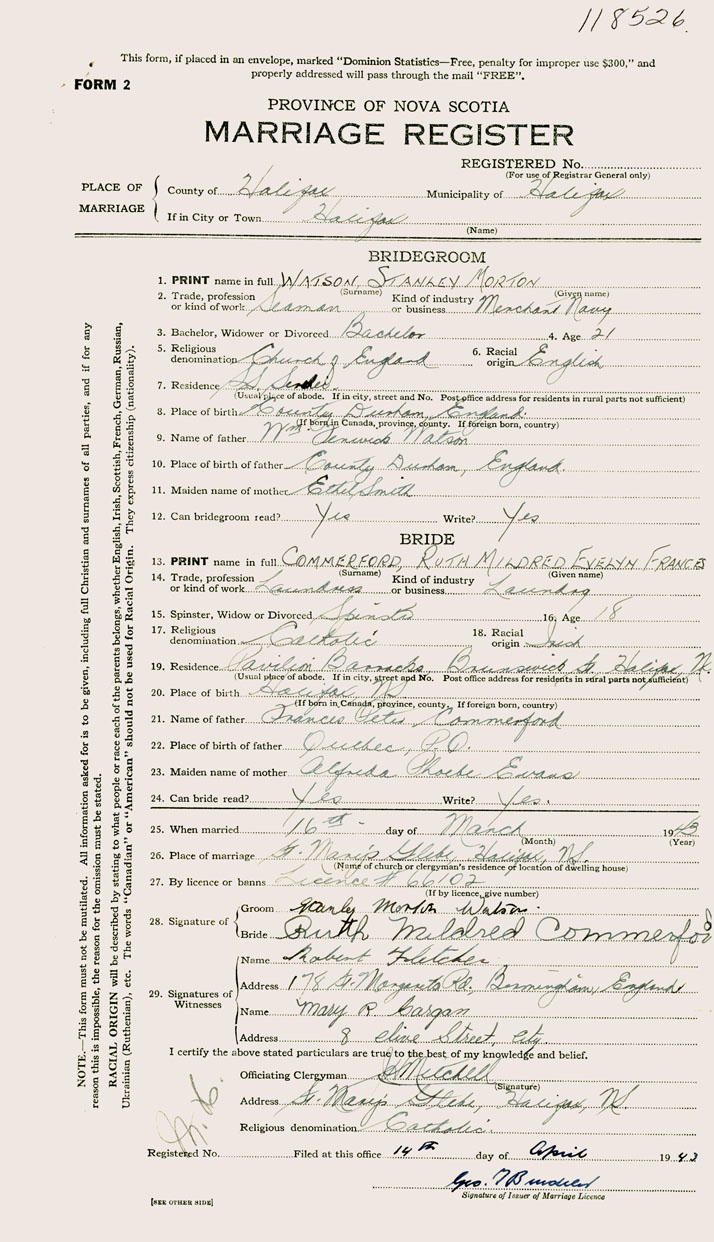 118526.
This form, if placed in an envelope, marked "Dominion Statistics—Free, penalty for improper use $300," and
properly addressed will pass through the mail "FREE".
FORM 2
PROVINCE OF NOVA SCOTIA
MARRIAGE REGISTER
REGISTERED No.
(For use of Registrar General only)
PLACE OF MARRIAGE
County of Halifax Municipality of Halifax
If in City or Town Halifax
(Name)
BRIDEGROOM
1. PRINT name in full WATSON, STANLEY MORTON
(Surname) (Given name)
2. Trade, profession or kind of work Seaman Kind of industry or business Merchant Navy
3. Bachelor, Widower or Divorced Bachelor 4. Age 21
5. Religious denomination Church of England 6. Racial origin English
7. Residence
(Usual place of abode. If in city, street and No. Post office address for residents in rural parts not sufficient)
8. Place of birth County Durham, England.
(If born in Canada, province, county. If foreign born, country)
9. Name of father Wm. Fenwick Watson
10. Place of birth of father County Durham, England.
11. Maiden name of mother Ethel Smith
12. Can bridegroom read? Yes Write? Yes
BRIDE
13. PRINT name in full COMMERFORD, RUTH MILDRED EVELYN FRANCES
(Surname) (Given name)
14. Trade, profession or kind of work Laundress Kind of industry or business Laundry
15. Spinster, Widow or Divorced Spinster 16. Age 18
17. Religious denomination Catholic 18. Racial origin Irish
19. Residence Pavilion Barracks, Brunswick St. Halifax, N.
(Usual place of abode. If in city, street and No. Post office address for residents in rural parts not sufficient)
20. Place of birth Halifax NS
(If born in Canada, province, county. If foreign born, country)
21. Name of father Frances Peter Commerford
22. Place of birth of father Quebec, P.Q.
23. Maiden name of mother Alfreda Phoebe Evans
24. Can bride read? Yes Write? Yes.
25. When married 16th day of March 1943
(Month) (Year)
26. Place of marriage St. Mary's Glebe, Halifax, NS.
(Name of church or clergyman's residence or location of dwelling house)
27. By licence or banns Licence # 66102
(If by licence, give number)
28. Signature of
Groom Stanley Morton Watson.
Bride Ruth Mildred Commerford
29. Signatures of Witnesses
Name Robert Fletcher
Address 178 St. Margarets Rd., Birmingham, England
Name Mary R Gargan
Address 8 Clive Street, City.
I certify the above stated particulars are true to the best of my knowledge and belief.
Officiating Clergyman Mitchell
(Signature)
Address St. Mary's Glebe, Halifax, NS.
Religious denomination Catholic.
Registered No. Filed at this office 14th day of April 1943
Geo.
Signature of Issuer of Marriage Licence
[SEE OTHER SIDE]
NOTE.—This form must not be mutilated. All information asked for is to be given, including full Christian and surnames of all parties, and if for any
reason this is impossible, the reason for the omission must be stated.
RACIAL ORIGIN will be described by stating to what people or race each of the parents belongs, whether English, Irish, Scottish, French, German, Russian,
Ukrainian (Ruthenian), etc. The words "Canadian" or "American" should not be used for Racial Origin. They express citizenship (nationality).